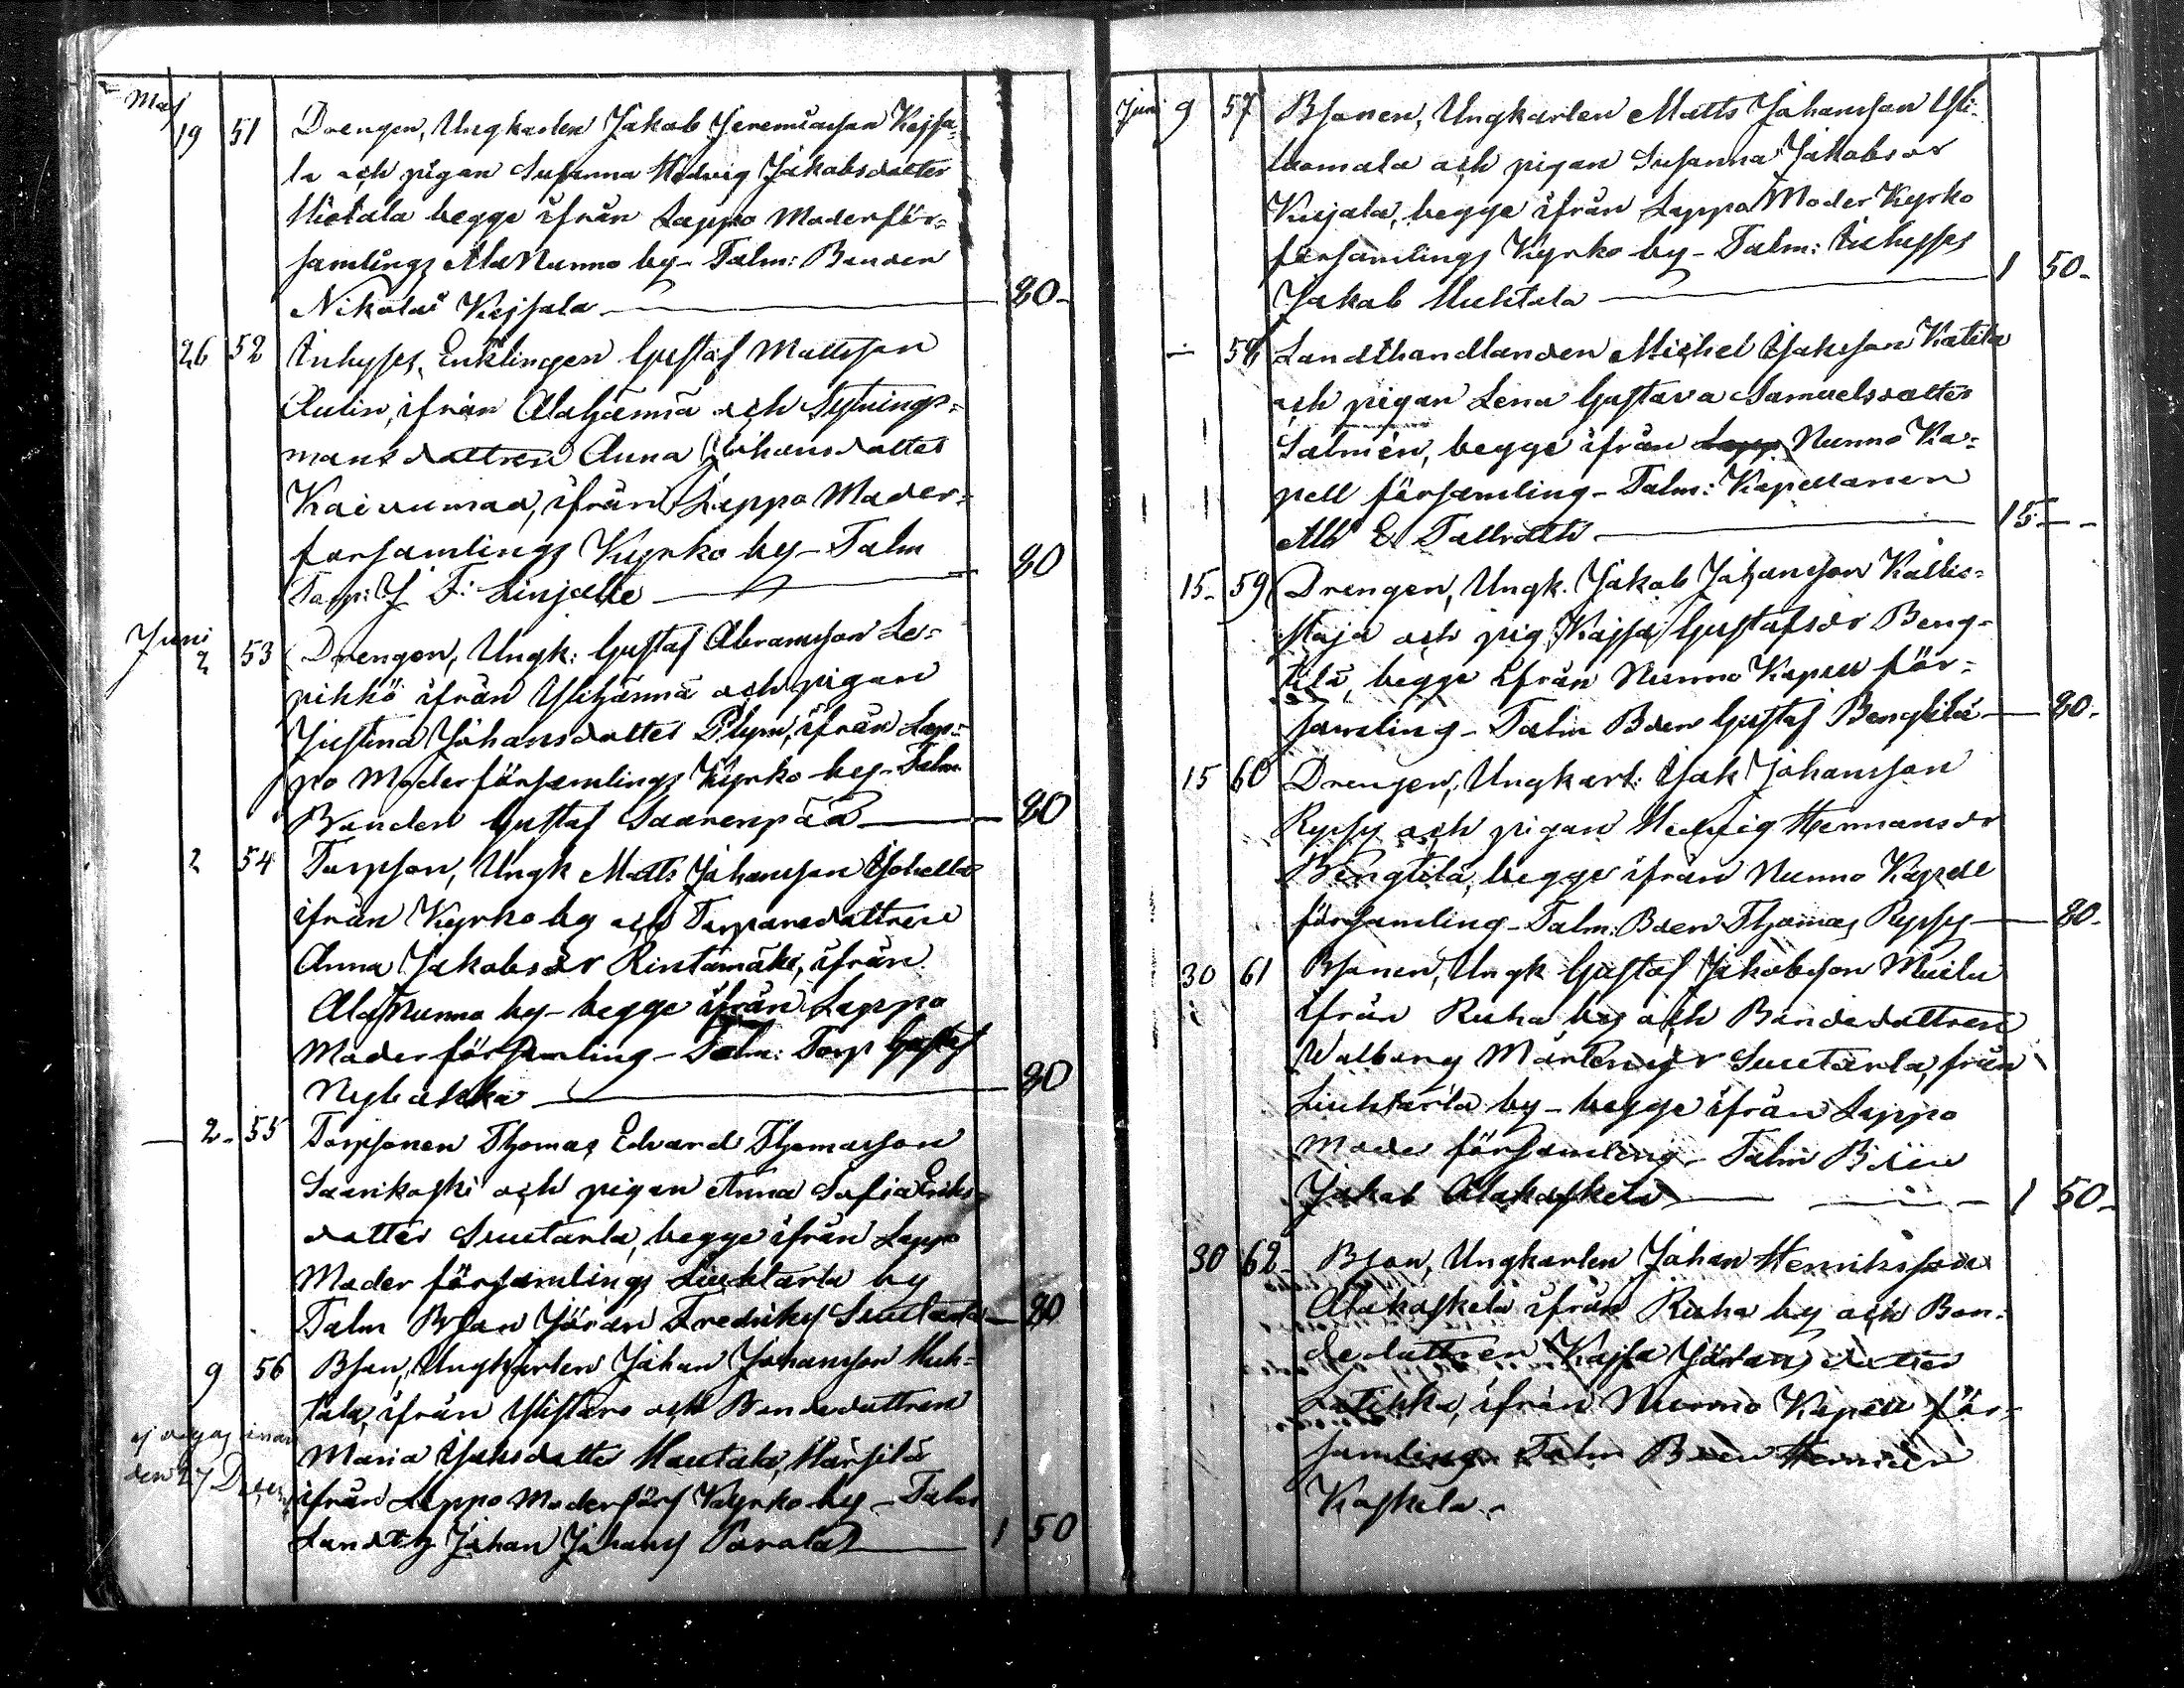 Maj
19 51 Drengen, Ungkarlen Jakob Jeremiasson Kejsa-
la och pigan Susanna Hedvig Jakobsdotter
Hietala begge ifrån Lappo Moderför-
samlings Ala Nurmo by - Talm: Bonden
Nikolai Kejsala 80 -
26 52 Inhyses, Enklingen Gustaf Mattsson
Aulin, ifrån Alahärmä och Sytnings-
mansdottren Anna Johansdotter
Kaivumaa, ifrån Lappo Moder-
forsamlings Kyrko by - Talm
Torp: J. F: Linjalle 80
Juni
2 53 Drengen, Ungk: Gustaf Abramsson Le-
pikkö ifrån Ylihärmä och pigan
Justina Johansdotter Plym, ifrån Lap-
po Moderförsamlings Kyrko by - Talm
Bonden Gustaf Saarenpää 80
2 54 Torpson, Ungk Matts Johansson Isohella
ifrån Kyrko by och Torparedottren
Anna Jakobsdr Rintamäki, ifrån
Ala Nurmo by - begge ifrån Lappo
Moderförsamling - Talm: Torp Gustaf
Nybakka 80
2 - 55 Torpsonen Thomas Edvard Thomasson
Saarikoski och pigan Anna Sofia Eriks-
dotter Luutarla, begge ifrån Lappo
Moder församlings Liuhtarla by
Talm Bson Jöran Fredriks Luutarla 80
9 56 Bson, Ungkarlen Johan Johansson Huh-
tala, ifrån Ylistaro och Bondedottren
Maria Isaksdotter Hautala, Härsilä
ifrån Lappo Moderförs Kyrko by - Talm
Landth Johan Johans Porola 1 50
ej vigas innan
den 27 Decem
Juni 9 57 Bsonen, Ungkarlen Matts Johansson Yli-
luomala och pigan Susanna Jakobsdr
Kujala, begge ifrån Lappo Moder Kyrko
församlings Kyrko by - Talm: Inhyses
Jakob Huhtala 1 50 -
- 58 Landthandlanden Michel Isaksson Katila
och pigan Lena Gustava Samuelsdotter
Salmén, begge ifrån Lapp Nurmo Ka-
pell församling - Talm: Kapellanen
Alb E. Tallroth 15 - -
15 - 59 Drengen, Ungk. Jakob Johansson Kallio-
Maja och pig Kajsa Gustafsdr Beng-
tilä, begge ifrån Nurmo Kapell för-
samling - Talm Bden Gustaf Bengtilä 80 -
15 60 Drengen, Ungkarl: Isak Johansson
Rypsy och pigan Hedvig Hermansdr
Bengtilä, begge ifrån Nurmo Kapell
församling - Talm: Bden Thomas Rypsy 80 -
30 61 Bsonen, Ungk Gustaf Jakobsson Muilu
ifrån Ruha by och Bondedottren
Walborg Mårtensdr Luutarla, från
Liuhtarla by - begge ifrån Lappo
Moder församling - Talm Bden
Jakob Alakoskela 1 50 -
30 62 - Bson, Ungkarlen Johan Henriksson
Alakoskela ifrån Ruha by och Bon-
dedottren Kajsa Jöransdotter
Latikka, ifrån Nurmo Kapell för-
samling Talm Bden Henrik
Koskela -